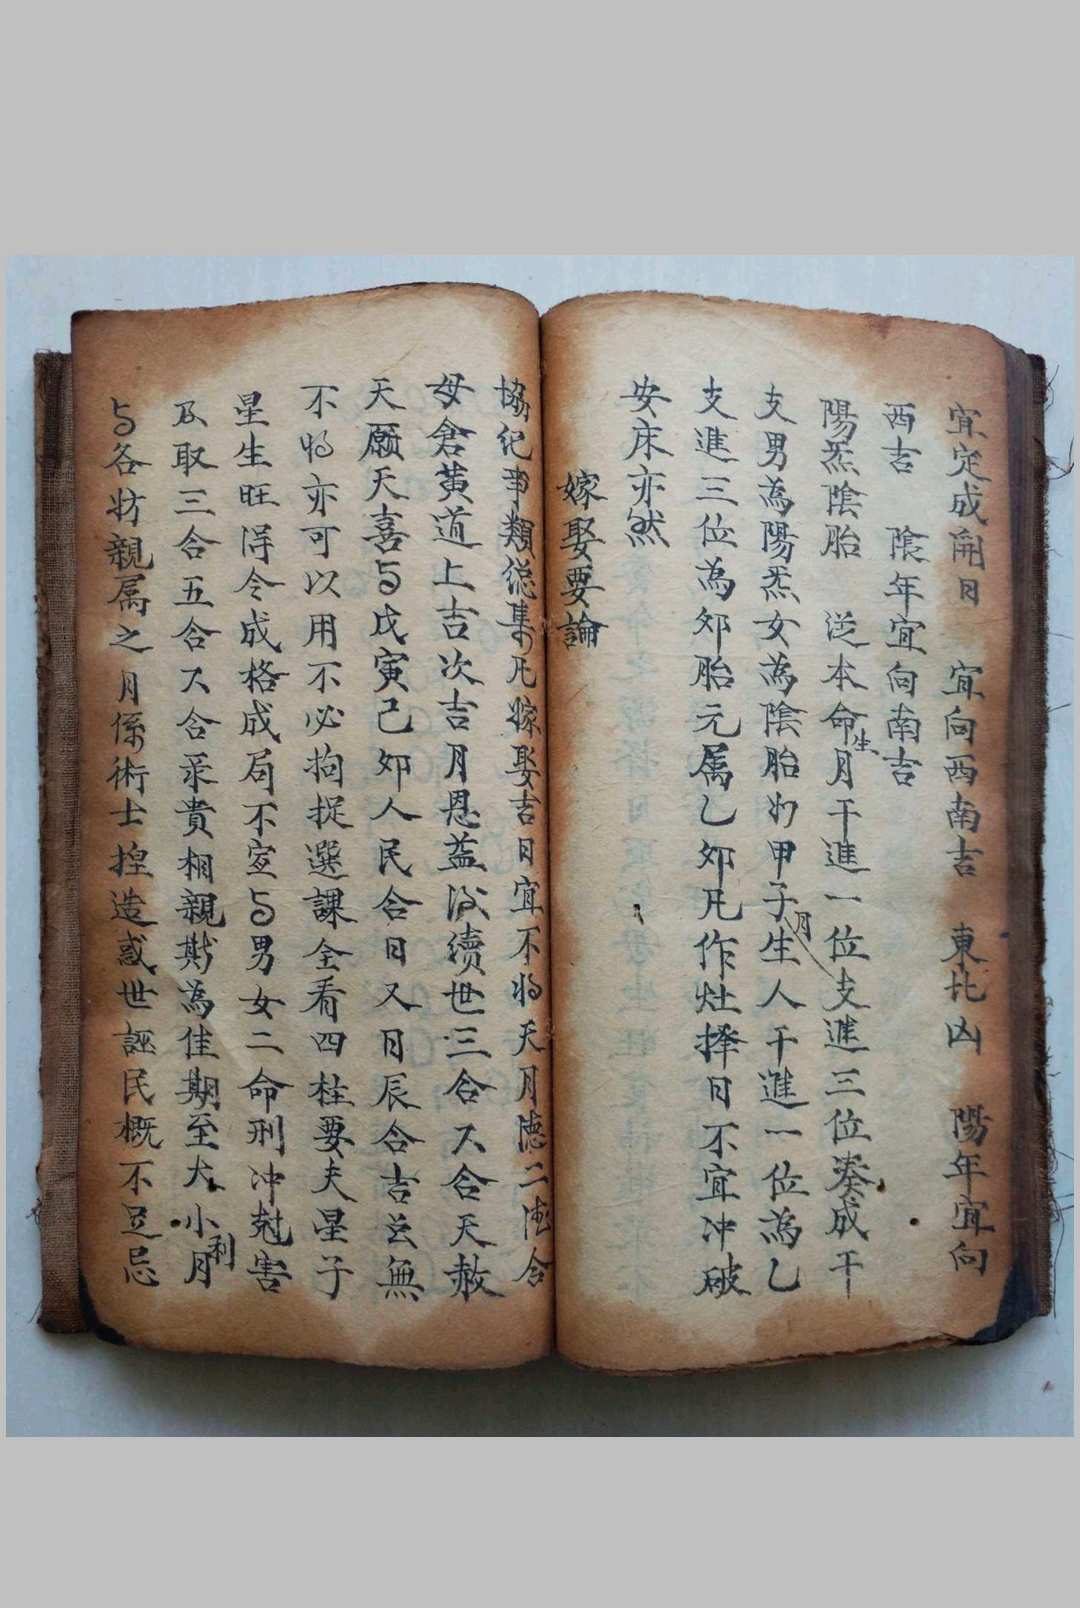 宜定成開日　宜向西南吉　東北凶　陽年宜向
西吉　陰年宜向南吉
陽炁陰胎　從本命生月干進一位支進三位湊成干
支男為陽炁女為陰胎如甲子月生人干進一位為乙
支進三位為夘胎元属乙夘凡作灶擇日不宜冲破
安床亦然
嫁娶要論
協纪事類總集凡嫁娶吉日宜不将天月德二德合
母倉黃道上吉次吉月恩益后續世三合六合天赦
天願天喜与戊寅己夘人民合日又日辰合吉玄無
不将亦可以用不必拘捉選課全看四柱要夫星子
星生旺淂令成格成局不宜与男女二命刑冲尅害
及取三合五合六合彔貴相親斯為佳期至大小利月
与各妨親属之月係術士捏造惑世誣民概不足忌